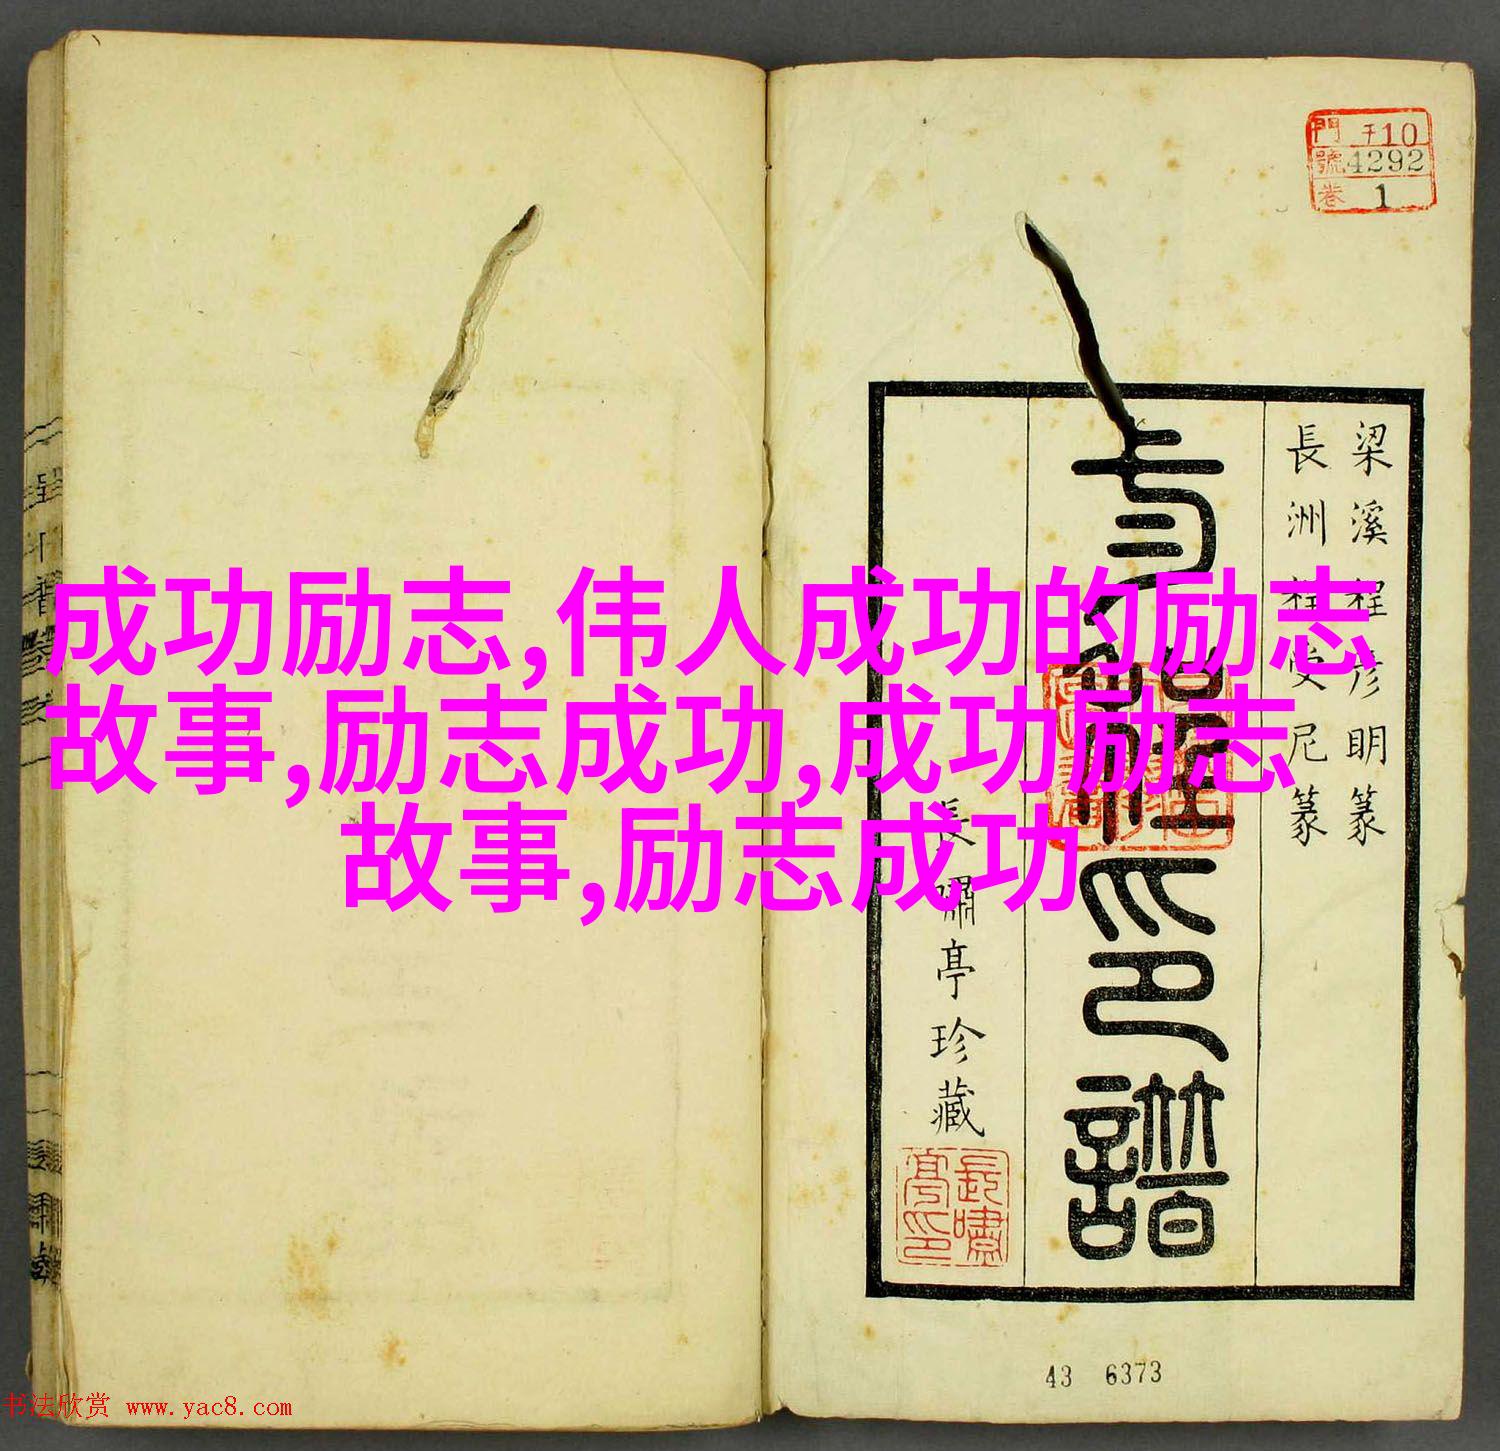 門 千10
號 4292
卷 1
梁溪程彦明篆
長洲程受尼篆
印譜
長嘯亭珍藏
長嘯亭印
成功励志,伟人成功的励志
故事,励志成功,成功励志
故事,励志成功
43 6373
书法欣赏 www.yac8.com